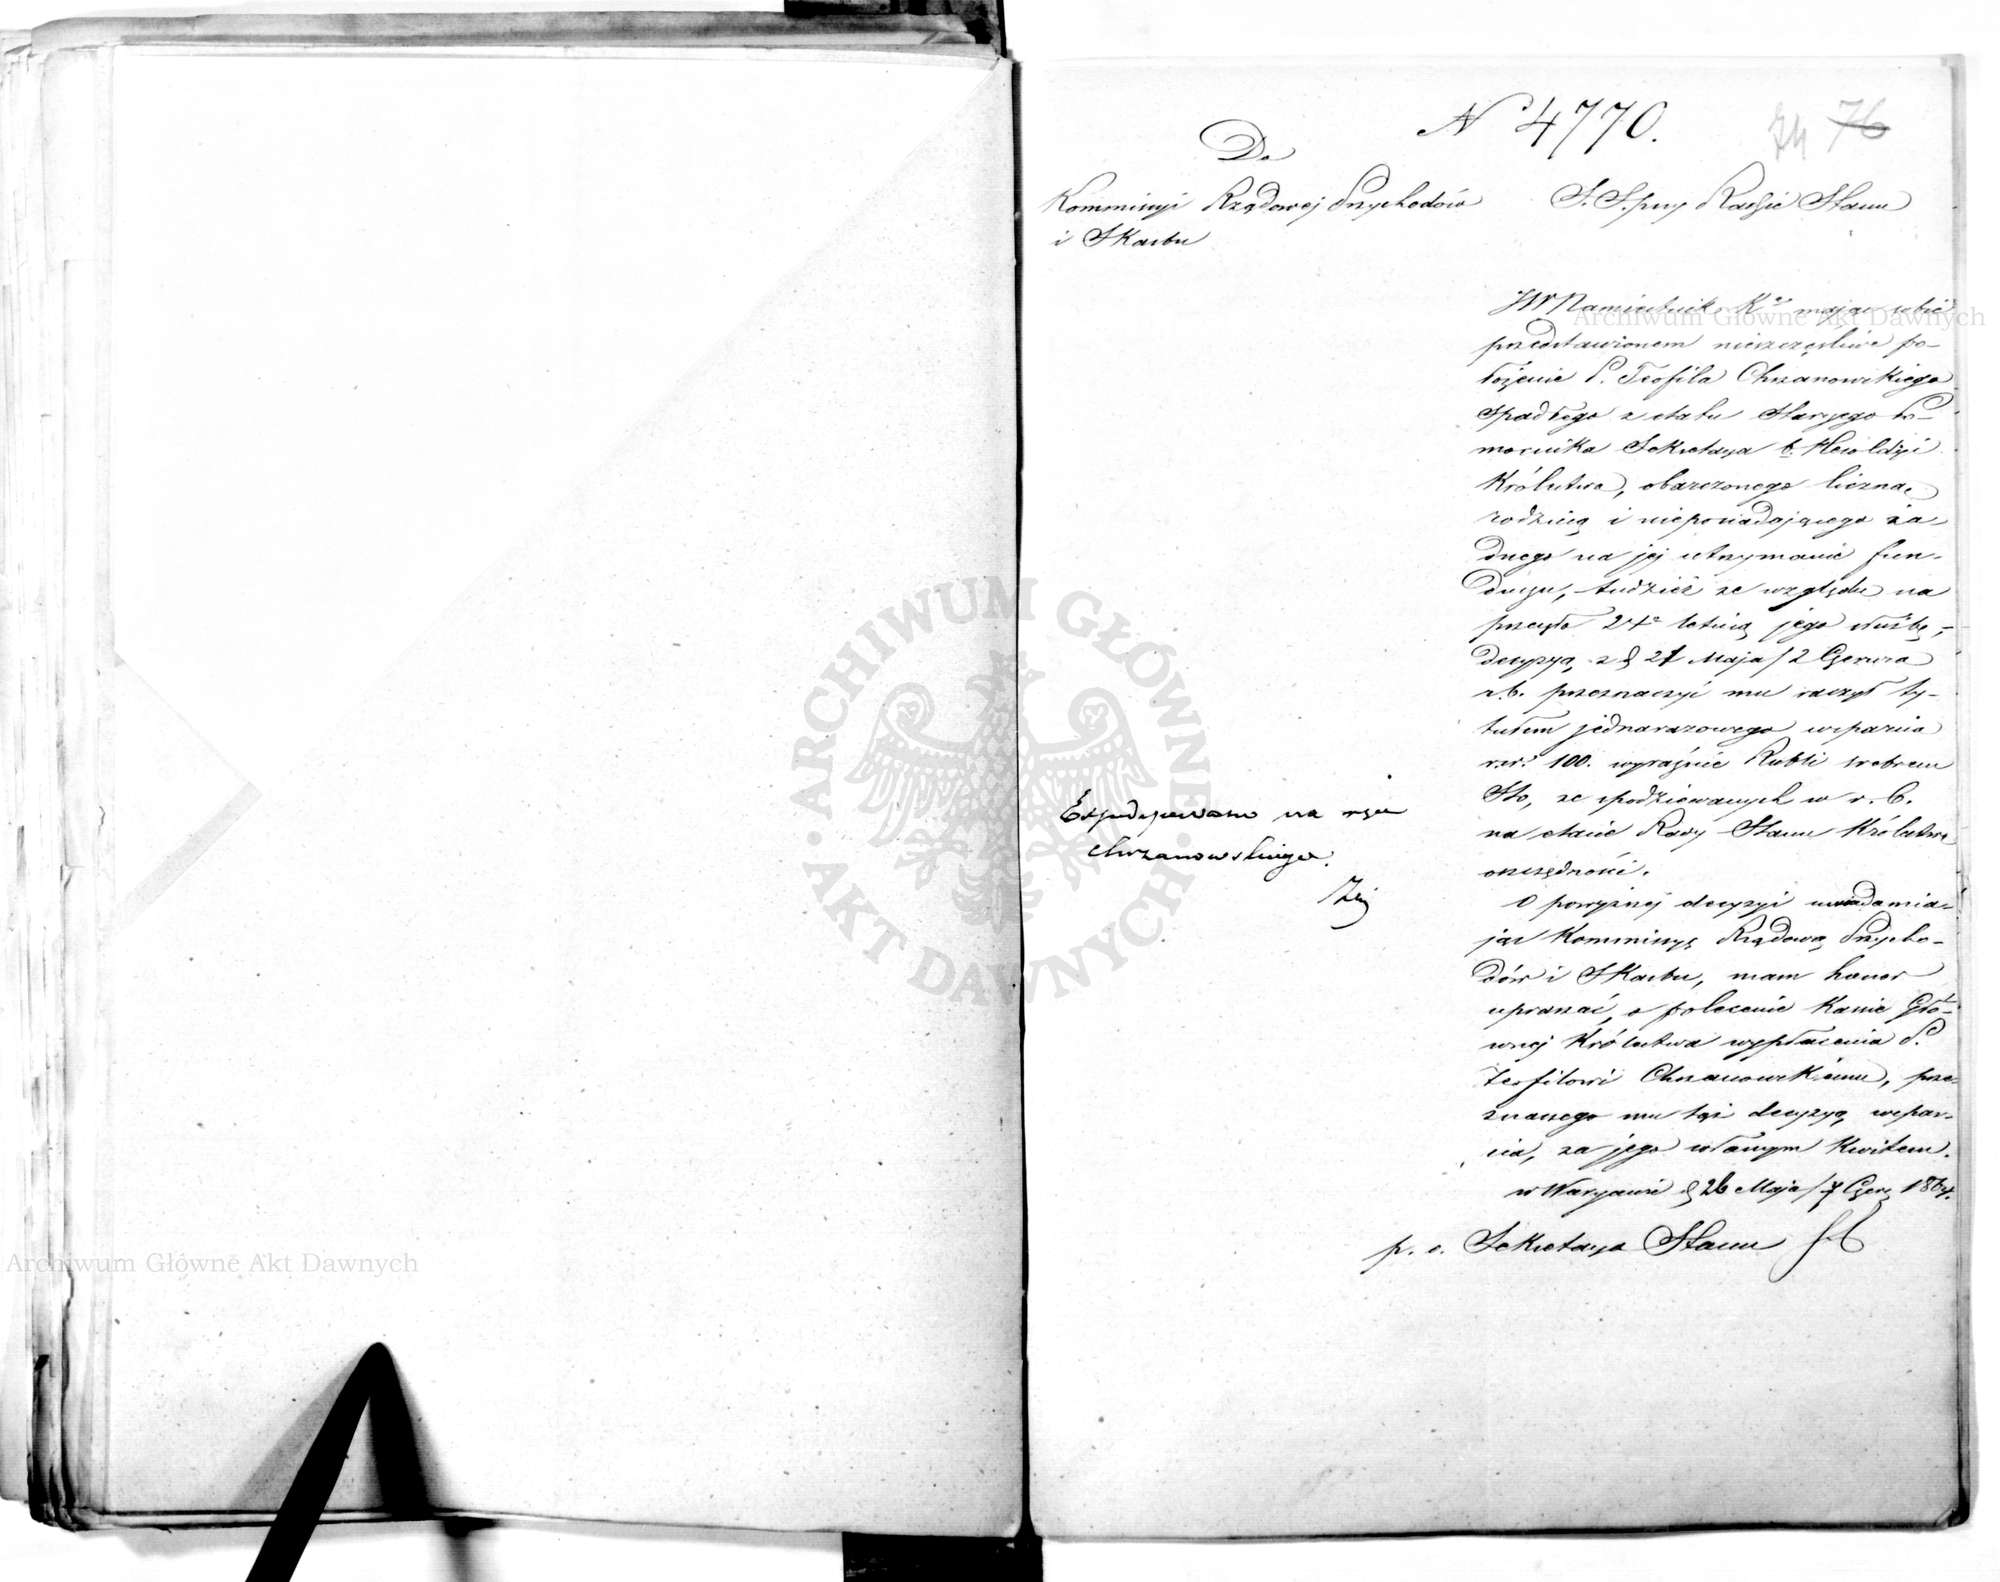 N 4770.
74 76
Do
Kommissyi Rządowej Przychodów
i Skarbu
S. S. przy Radzie Stanu
JW Namiestnik K. mając sobie
przedstawionem nieszczęśliwe po-
łożenie P. Teofila Chrzanowskiego
spadłego z etatu Starszego Po-
mocnika Sekretarza b. Heroldyi
Królestwa, obarczonego liczną
rodziną i nieposiadającego ża-
dnego na jej utrzymanie fun-
duszu, tudzież ze względu na
przeszło 24o letnią jego służbę,-
decyzyą z d 21 Maja / 2 Czerwca
r.b. przeznaczyć mu raczył ty-
tułem jednorazowego wsparcia
rsr. 100. wyraźnie Rubli srebrem
Sto, ze spodziewanych w r. b.
na etacie Rady Stanu Królestwa
oszczędności.
O powyższej decyzyi uwiadamia-
jąc Kommissyę Rządową Przycho-
dów i Skarbu, mam honor
upraszać, o polecenie Kassie Głó-
wnej Królestwa wypłacenia P.
Teofilowi Chrzanowskiemu, prze-
znaczonego mu tąż decyzyą wspar-
cia, za jego własnym Kwitem.
w Warszawie d 26 Maja / 7 Czer. 1864.
p. o. Sekretarza Stanu
Expedyowano na ręce
Chrzanowskiego.
Archiwum Główne Akt Dawnych
ARCHIWUM GŁÓWNE · AKT DAWNYCH ·
Archiwum Główne Akt Dawnych